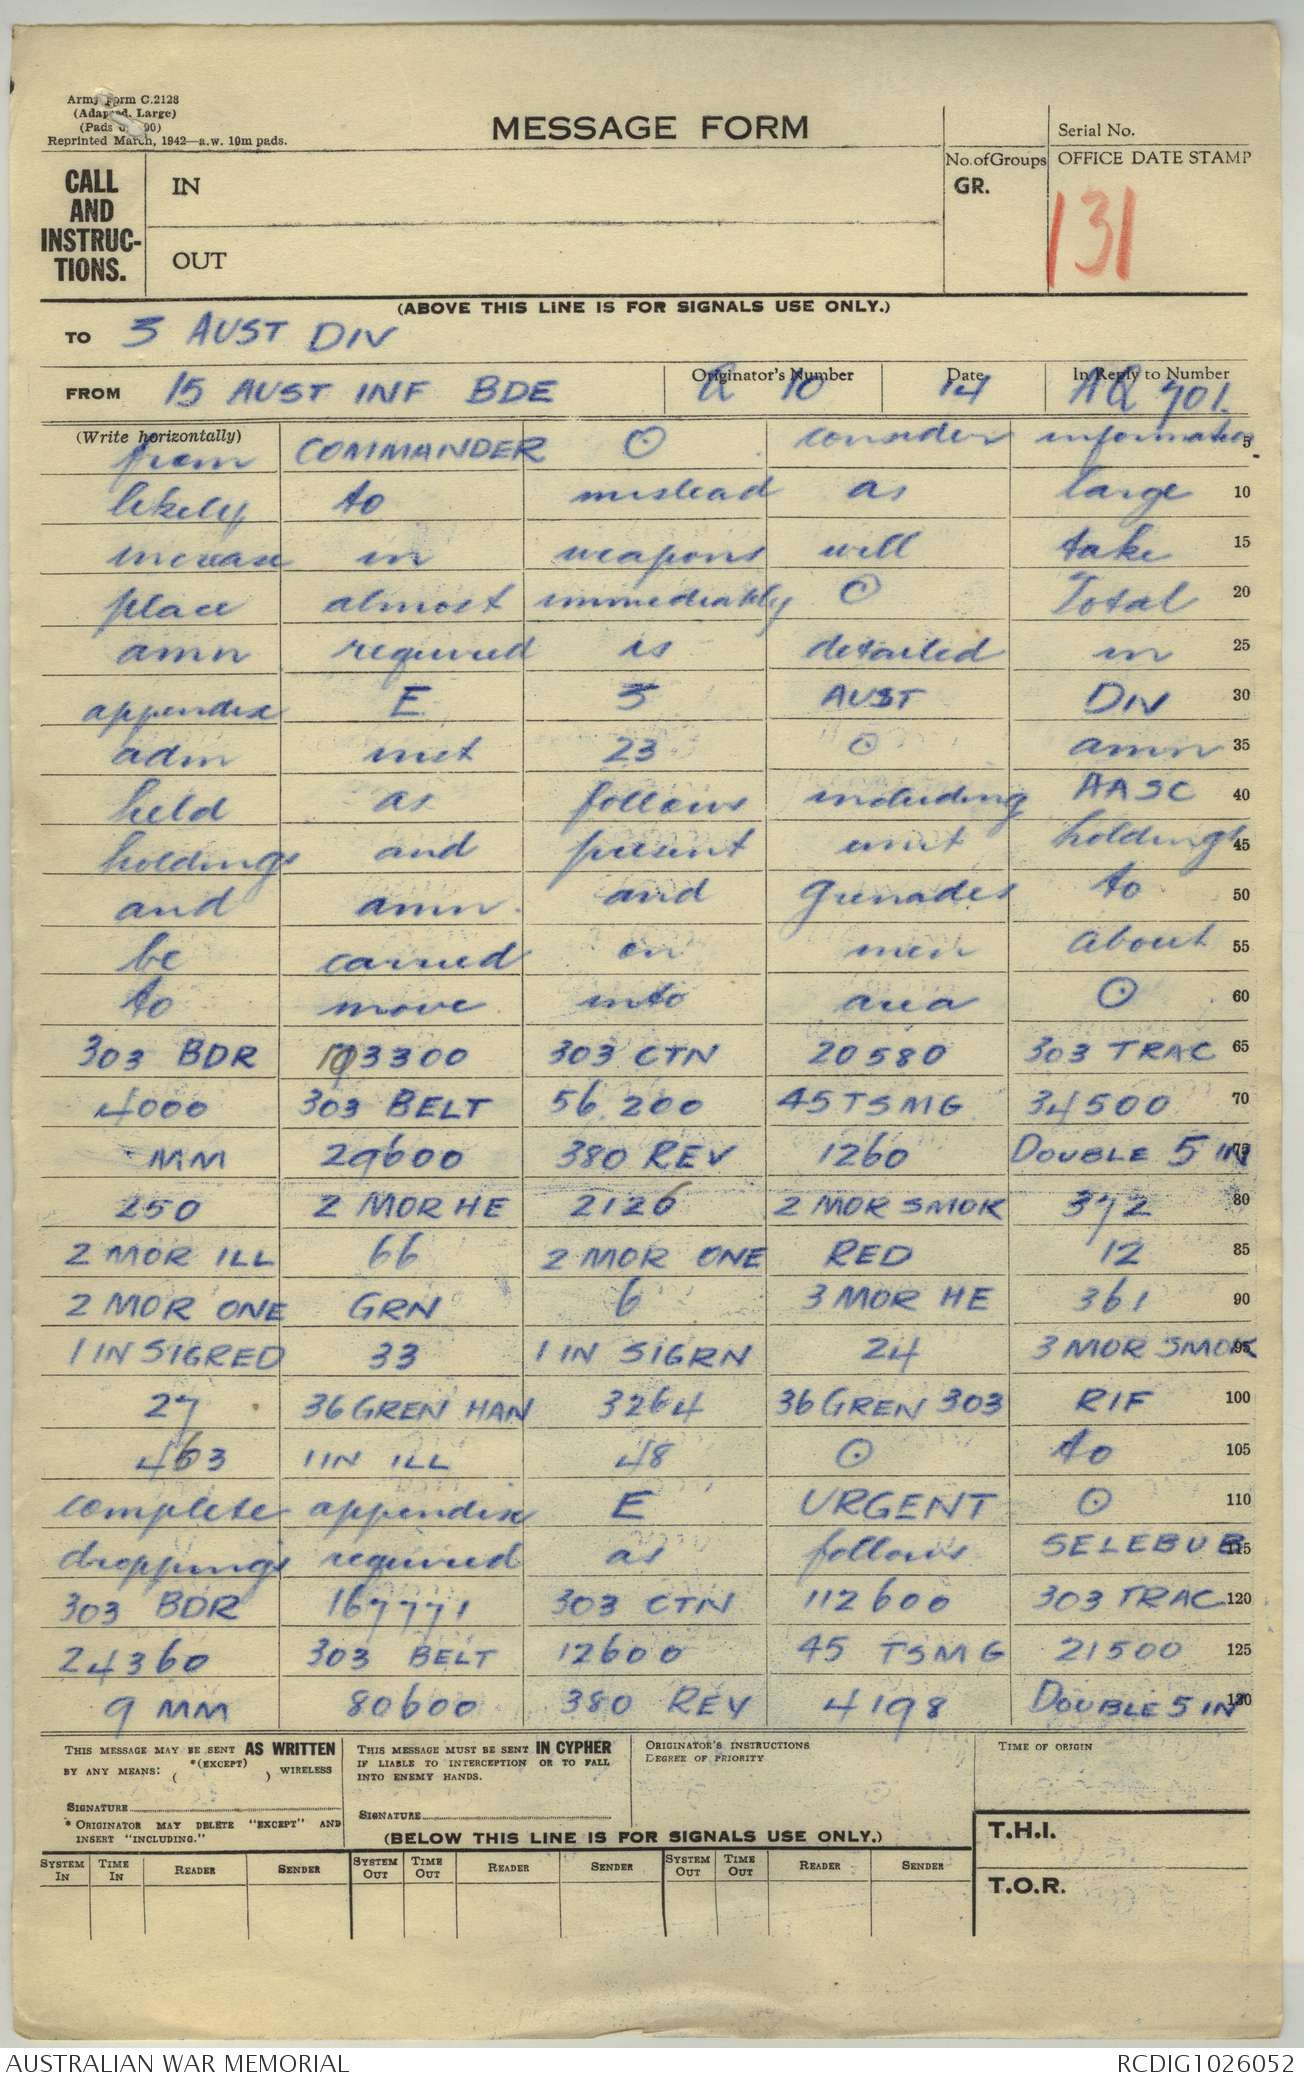 Army Form C.2128
(Adapted, Large)
(Pads of 100)
Reprinted March, 1942—a.w. 10m pads.
MESSAGE FORM
Serial No.
No. of Groups
OFFICE DATE STAMP
CALL AND INSTRUC-TIONS.
IN
GR.
131
OUT
(ABOVE THIS LINE IS FOR SIGNALS USE ONLY.)
TO 3 AUST DIV
Originator's Number Date In Reply to Number
FROM 15 AUST INF BDE Q 10 14 AQ 701.
(Write horizontally)
from COMMANDER ⊙ consider information 5
likely to mislead as large 10
increase in weapons will take 15
place almost immediately ⊙ Total 20
amn required is detailed in 25
appendix E 3 AUST DIV 30
adm inst 23 ⊙ amn 35
held as follows including AASC 40
holdings and present unit holdings 45
and amn. and grenades to 50
be carried on men about 55
to move into area ⊙ 60
303 BDR 3300 303 CTN 20580 303 TRAC 65
4000 303 BELT 56 200 45 TSMG 34500 70
MM 29600 380 REV 1260 DOUBLE 5 IN 75
250 2 MOR HE 2126 2 MOR SMOK 372 80
2 MOR ILL 66 2 MOR ONE RED 12 85
2 MOR ONE GRN 6 3 MOR HE 361 90
1 IN SIGRED 33 1 IN SIGRN 24 3 MOR SMOK 95
27 36 GREN HAN 3264 36 GREN 303 RIF 100
463 1 IN ILL 48 ⊙ to 105
complete appendix E URGENT ⊙ 110
droppings required as follows SELEBUB 115
303 BDR 167771 303 CTN 112600 303 TRAC 120
24360 303 BELT 12600 45 TSMG 21500 125
9 MM 80600 380 REV 4198 DOUBLE 5 IN 130
THIS MESSAGE MAY BE SENT AS WRITTEN
BY ANY MEANS: *(EXCEPT) ( ) WIRELESS
SIGNATURE
* ORIGINATOR MAY DELETE "EXCEPT" AND
INSERT "INCLUDING."
THIS MESSAGE MUST BE SENT IN CYPHER
IF LIABLE TO INTERCEPTION OR TO FALL
INTO ENEMY HANDS.
SIGNATURE
ORIGINATOR'S INSTRUCTIONS
DEGREE OF PRIORITY
TIME OF ORIGIN
(BELOW THIS LINE IS FOR SIGNALS USE ONLY.)
T.H.I.
SYSTEM IN TIME IN READER SENDER SYSTEM OUT TIME OUT READER SENDER SYSTEM OUT TIME OUT READER SENDER
T.O.R.
AUSTRALIAN WAR MEMORIAL
RCDIG1026052